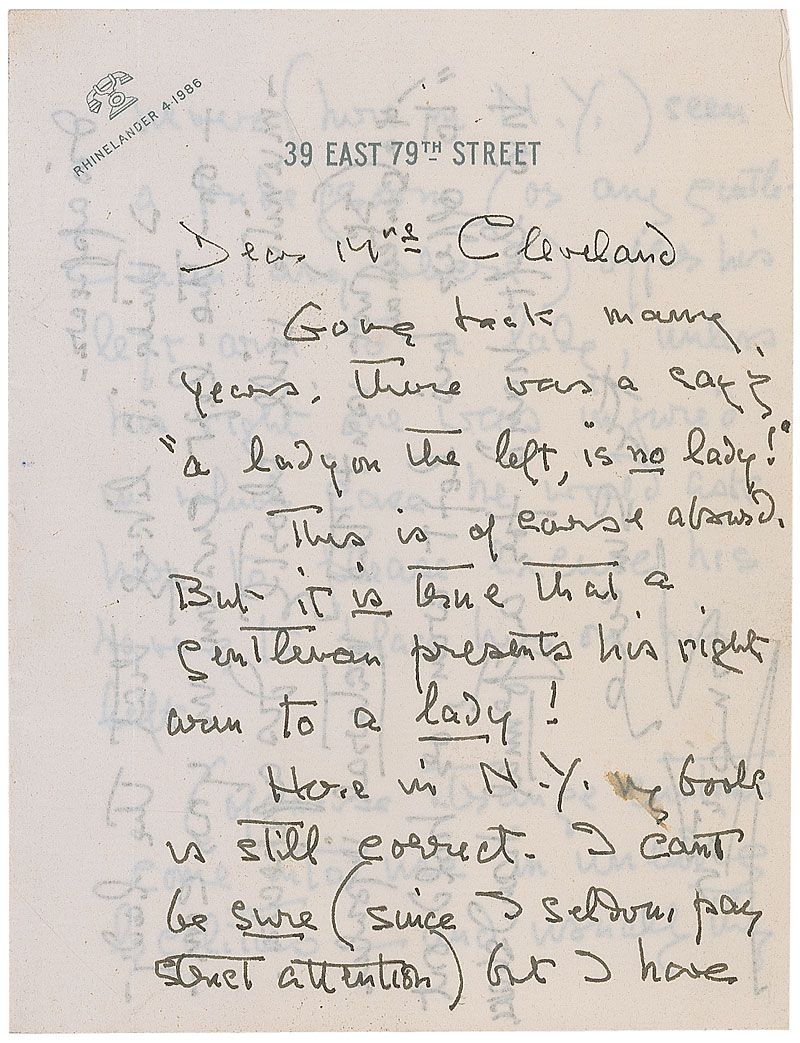 RHINELANDER 4-1986
39 EAST 79TH STREET
Dear Mrs Cleveland
Going back many
years, there was a say'g
"a lady on the left, is no lady!"
This is of course absurd.
But it is true that a
gentleman presents his right
arm to a lady!
Here in N.Y. my book
is still correct. I cant
be sure (since I seldom pay
strict attention) but I have